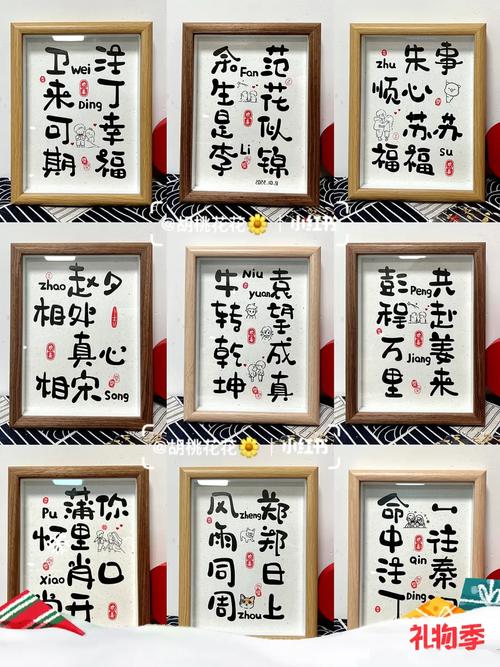 Wei
Ding
卫来可期
注丁幸福
Fan
Li
余生是李
范花似锦
zhu 朱事
顺心
苏苏
福福
su
@胡桃花花 | 小红书
zhao 赵夕
相处
真心
相宋 Song
Niu
yuan
牛转乾坤
袁望成真
Peng
Jiang
彭程万里
共赴姜来
@胡桃花花 | 小红书
Pu 蒲你
怀里
Xiao 肖口
开
zheng
zhou
风雨同周
郑郑日上
Qin
Ding
命中注丁
一往秦
礼物季